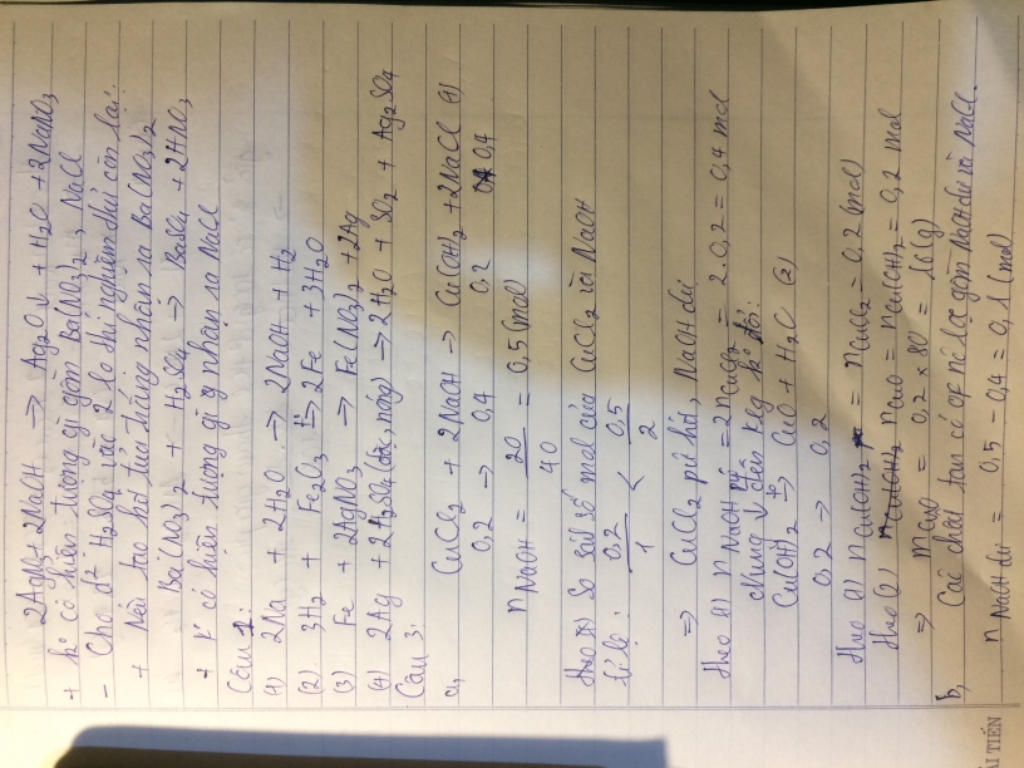 2AgNO3 + 2NaOH → Ag2O↓ + H2O + 2NaNO3
+ k° có hiện tượng gì gồm Ba(NO3)2, NaCl
- Cho dd H2SO4 vào 2 lọ thí nghiệm thử còn lại:
+ Nếu tạo kết tủa trắng nhận ra Ba(NO3)2
Ba(NO3)2 + H2SO4 → BaSO4 + 2HNO3
+ K° có hiện tượng gì nhận ra NaCl
Câu 1:
(1) 2Na + 2H2O → 2NaOH + H2
(2) 3H2 + Fe2O3 t°→ 2Fe + 3H2O
(3) Fe + 2AgNO3 → Fe(NO3)2 + 2Ag
(4) 2Ag + 2H2SO4(đặc, nóng) → 2H2O + SO2 + Ag2SO4
Câu 3:
a, CuCl2 + 2NaOH → Cu(OH)2 + 2NaCl (1)
0,2 → 0,4 0,2 0,4
nNaOH = 20/40 = 0,5 (mol)
Theo (1) So sánh số mol của CuCl2 và NaOH
tỉ lệ: 0,2/1 < 0,5/2
⇒ CuCl2 pứ hết, NaOH dư
Theo (1) nNaOH pứ = 2nCuCl2 = 2.0,2 = 0,4 mol
Nung ↓ đến klg k° đổi:
Cu(OH)2 t°→ CuO + H2O (2)
0,2 → 0,2
Theo (1) nCu(OH)2 = nCuCl2 = 0,2 (mol)
Theo (2) nCuO = nCu(OH)2 = 0,2 mol
⇒ mCuO = 0,2 × 80 = 16 (g)
b, Các chất tan có ở nc lọc gồm NaOH dư và NaCl.
nNaOH dư = 0,5 - 0,4 = 0,1 (mol)
ẢI TIẾN